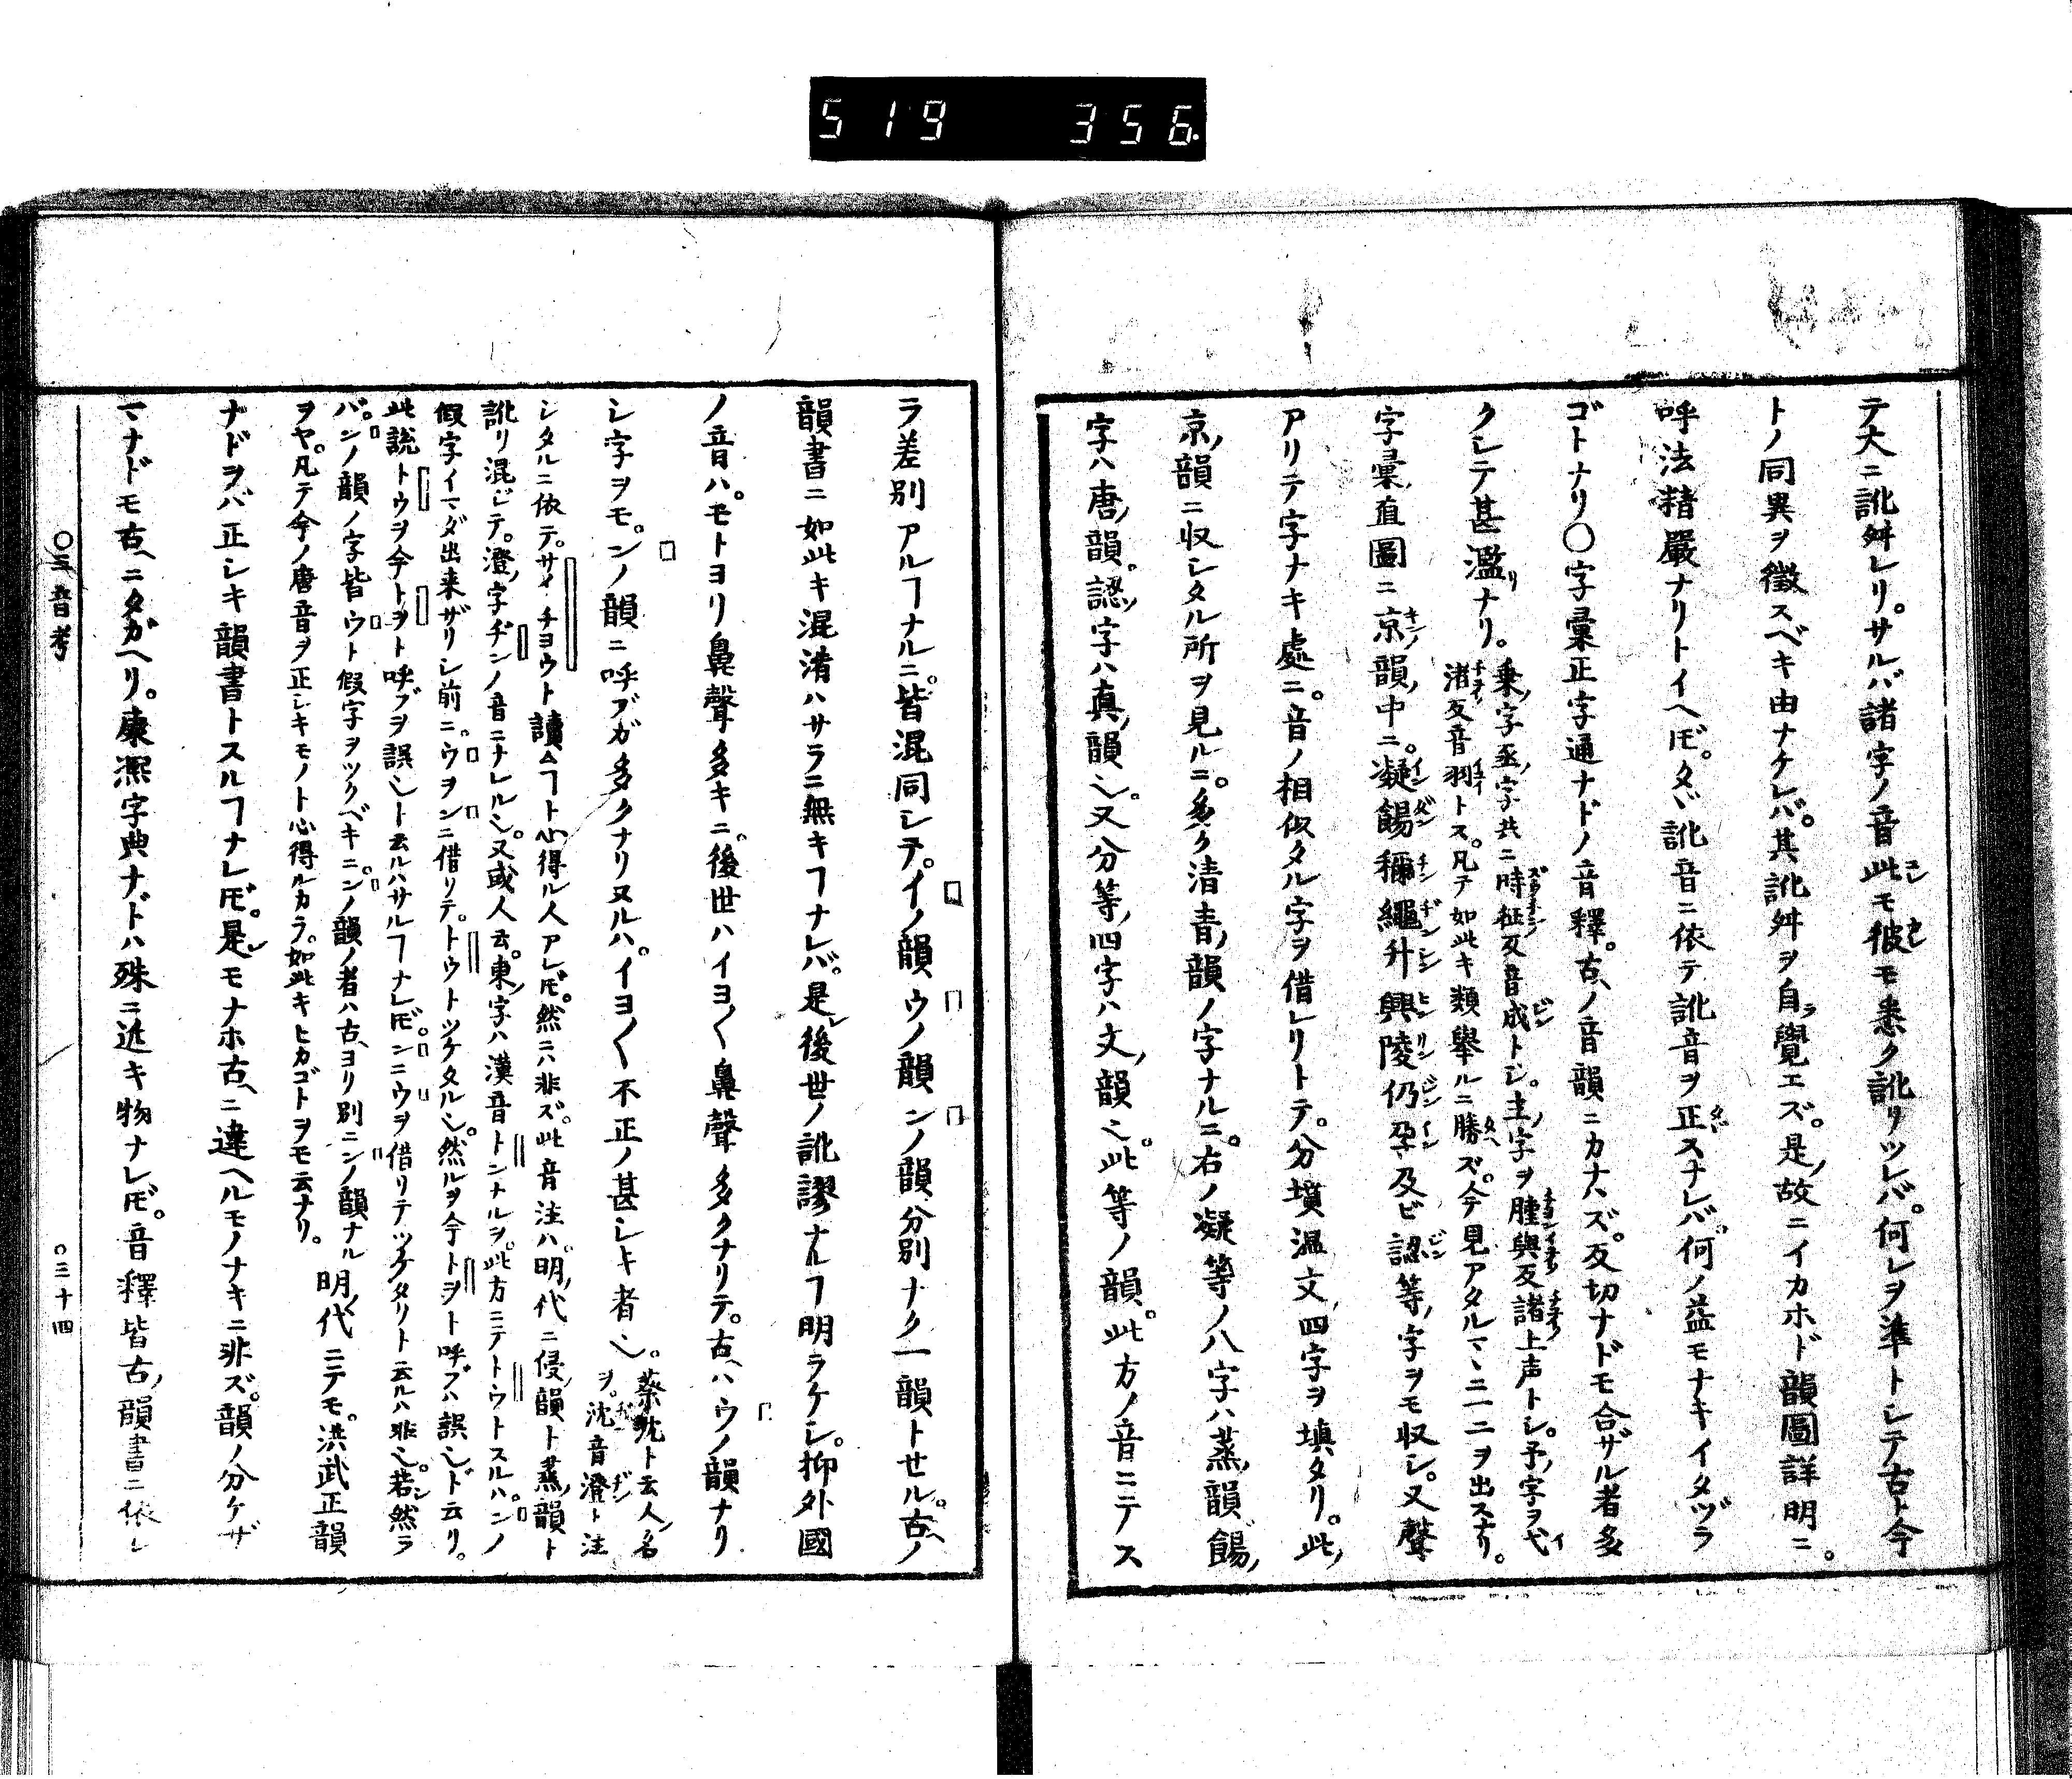 519 356
テ大ニ訛舛レリ。サルバ諸字ノ音此モ彼モ悉ク訛リツレバ。何レヲ準トシテ古ト今
トノ同異ヲ徴スベキ由ナケレバ。其訛舛ヲ自覺エズ。是ノ故ニイカホド韻圖詳明ニ。
呼法精嚴ナリトイヘ𪜈。タヾ訛音ニ依テ訛音ヲ正スナレバ。何ノ益モナキイタヅラ
ゴトナリ〇字彙正字通ナドノ音釋。古ヘノ音韻ニカナハズ。反切ナドモ合ザル者多
クシテ甚濫ナリ。
乗ノ字丞ノ字共ニ時征反音成トシ。主ノ字ヲ腫與反諸上声トシ。予ノ字ヲ弋
渚反音羽トス。凡テ如此キ類舉ルニ勝ズ。今見アタルマヽニ一二ヲ出スナリ。
字彙ノ直圖ニ京ノ韻ノ中ニ。凝餳稱繩升興陵仍孕及ビ認等ノ字ヲモ収シ。又聲
アリテ字ナキ處ニ。音ノ相似タル字ヲ借レリトテ。分墳温文ノ四字ヲ填タリ。此ノ
京ノ韻ニ収シタル所ヲ見ルニ。多ク清青ノ韻ノ字ナルニ。右ノ凝等ノ八字ハ蒸ノ韻。餳ノ
字ハ唐ノ韻。認ノ字ハ真ノ韻也。又分等ノ四字ハ文ノ韻也。此等ノ韻。此方ノ音ニテス
ラ差別アルヿナルニ。皆混同シテ。イノ韻ウノ韻ンノ韻分別ナク一韻トセル。古ヘノ
韻書ニ如此キ混淆ハサラニ無キヿナレバ。是レ後世ノ訛謬ナルヿ明ラケシ。抑外國
ノ音ハ。モトヨリ鼻聲多キニ。後世ハイヨ〳〵鼻聲多クナリテ。古ヘハウノ韻ナリ
シ字ヲモ。ンノ韻ニ呼ブガ多クナリヌルハ。イヨ〳〵不正ノ甚シキ者也。
蔡沈ト云人ノ名
ヲ。沈音澄ト注
シタルニ依テ。サイチヨウト讀ムヿト心得ル人アレ𪜈。然ニハ非ズ。此音注ハ。明ノ代ニ侵ノ韻ト蒸ノ韻ト
訛リ混ジテ。澄ノ字ヂンノ音ニナレル也。又或人云。東ノ字ハ漢音トンナルヲ。此方ニテトウトスルハ。ンノ
假字イマダ出来ザリシ前ニ。ウヲンニ借リテ。トウトツケタル也。然ルヲ今トヲト呼ブハ誤也ト云リ。
此説トウヲ今トヲト呼ブヲ誤也ト云ルハサルヿナレ𪜈。ンニウヲ借リテツケタリト云ルハ非也。若シ然ラ
バ。ンノ韻ノ字皆ウト假字ヲツクベキニ。ンノ韻ノ者ハ古ヘヨリ別ニンノ韻ナル
ヲヤ。凡テ今ノ唐音ヲ正シキモノト心得ルカラ。如此キヒガゴトヲモ云ナリ。
明ノ代ニテモ。洪武正韻
ナドヲバ正シキ韻書トスルヿナレ𪜈。是レモナホ古ヘニ違ヘルモノナキニ非ズ。韻ノ分ケザ
マナドモ古ヘニタガヘリ。康熙字典ナドハ殊ニ近キ物ナレ𪜈。音釋皆古ノ韻書ニ依レ
〇三音考
〇三十四